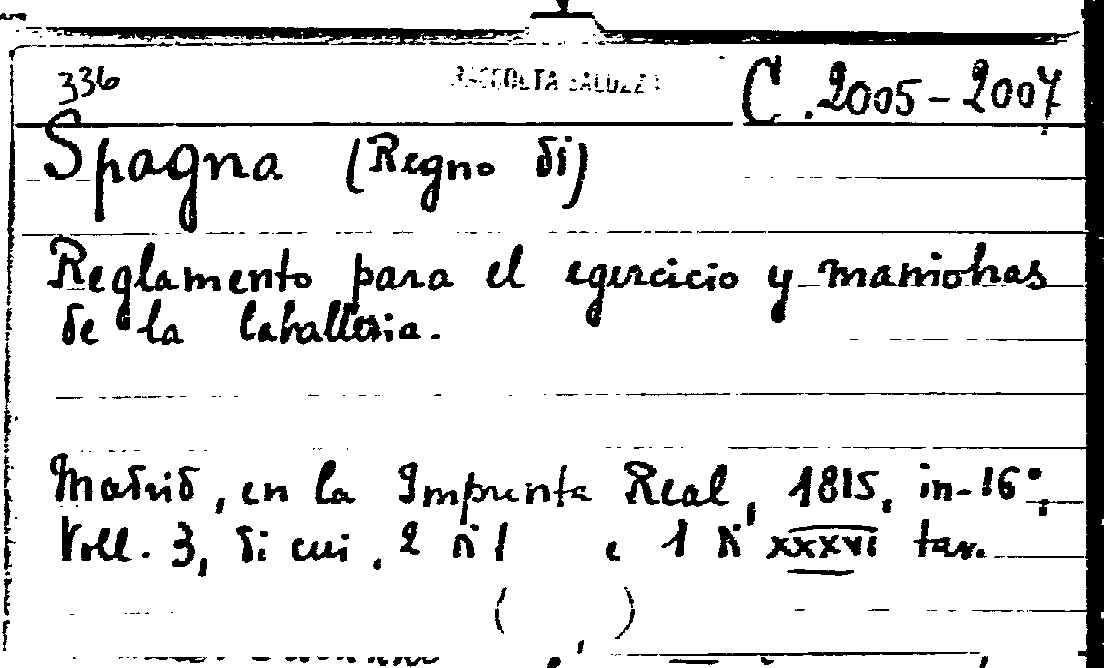 336 RACCOLTA SALUZZO C. 2005-2007
Spagna (Regno di)
Reglamento para el egercicio y maniobras
de la Caballeria.
Madrid, en la Imprenta Real, 1815, in-16°,
Voll. 3, di cui, 2 di e 1 di XXXVI tav.
( )